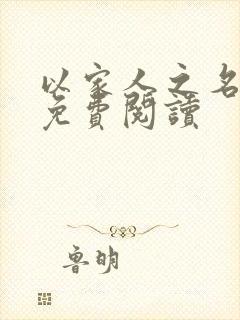 以家人之名
免費閱讀
魯明